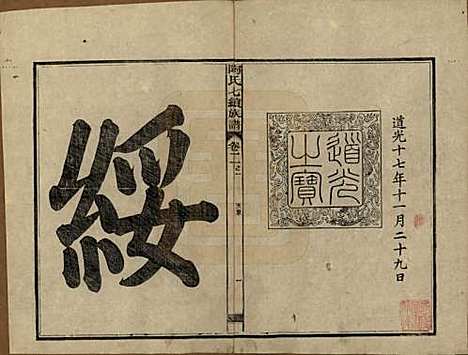 道光十七年十一月二十九日
道光
之寶
陶氏七續族譜
卷
綏